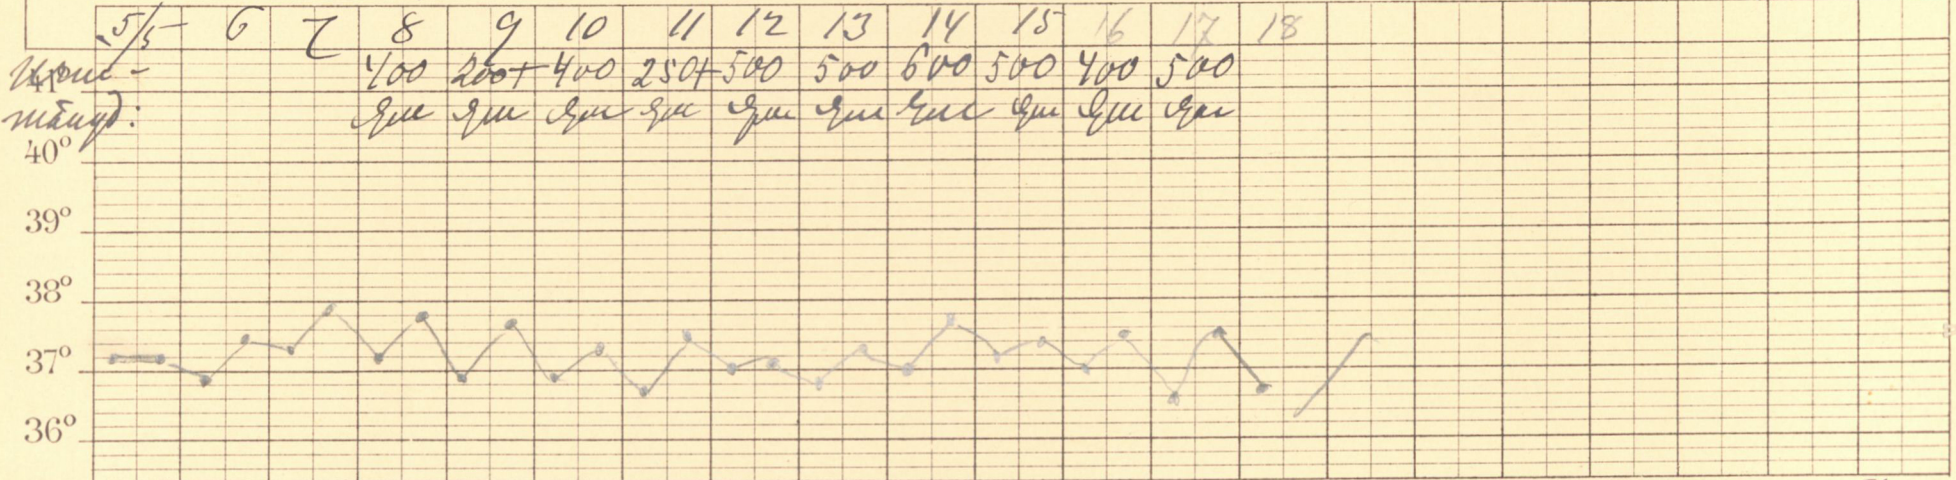 5/5 6 7 8 9 10 11 12 13 14 15 16 17 18
Urin- 400 200+ 400 250+ 500 500 600 500 400 500
mängd: gm gm gm gm gm gm gm gm gm gm
40°
39°
38°
37°
36°